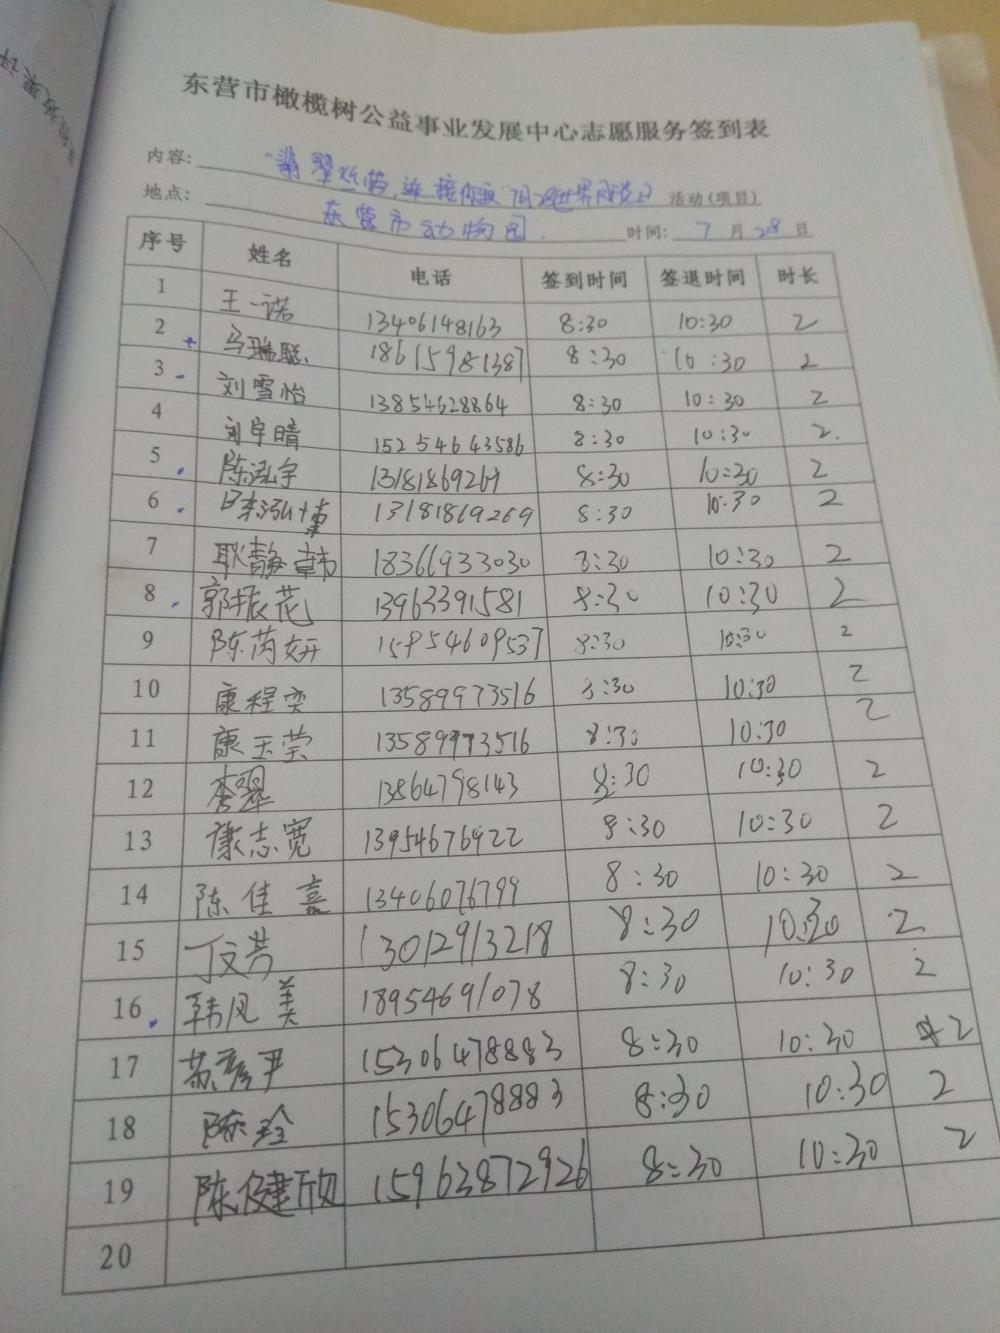 东营市橄榄树公益事业发展中心志愿服务签到表
内容: "翡翠 连接 世界 活动(项目)
地点: 东营市动物园 时间: 7 月 28 日
序号 姓名 电话 签到时间 签退时间 时长
1 王一诺 13406148163 8:30 10:30 2
2 马瑞聪 18615981387 8:30 10:30 2
3 刘雪怡 13854628864 8:30 10:30 2
4 刘宇晴 15254643586 8:30 10:30 2.
5 陈泓宇 13181869269 8:30 10:30 2
6 陈泓博 13181869269 8:30 10:30 2
7 耿静韩 18366933030 8:30 10:30 2
8 郭振花 13963391581 8:30 10:30 2
9 陈芮妍 15954609537 8:30 10:30 2
10 康程奕 13589973516 8:30 10:30 2
11 康玉莹 13589973516 8:30 10:30 2
12 李翠 13864798143 8:30 10:30 2
13 康志宽 13954676922 8:30 10:30 2
14 陈佳嘉 13406076799 8:30 10:30 2
15 丁文芳 13012913218 8:30 10:30 2
16 韩风美 18954691078 8:30 10:30 2
17 苏彦尹 15306478883 8:30 10:30 2
18 陈玲 15306478883 8:30 10:30 2
19 陈健欣 15963872926 8:30 10:30 2
20